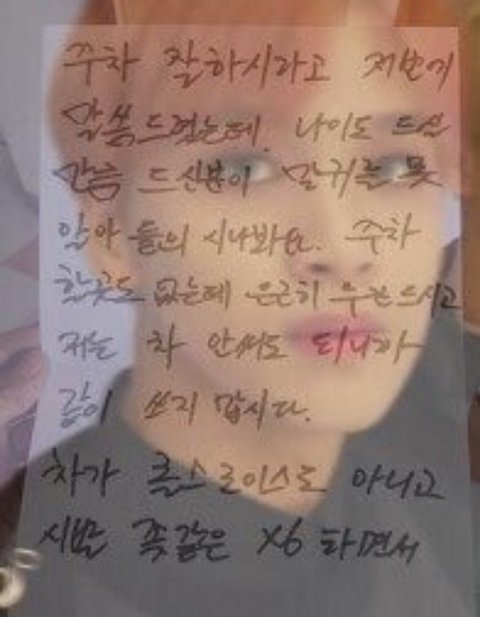 주차 잘하시라고 저번에
말씀드렸는데. 나이도 드실
만큼 드신분이 말귀를 못
알아 들의시나봐요. 주차
할곳도 없는데 은근히 두칸드시고
저는 차 안써도 되니까
같이 쓰지 맙시다.
차가 롤스로이스도 아니고
시발 좆같은 X6 타면서